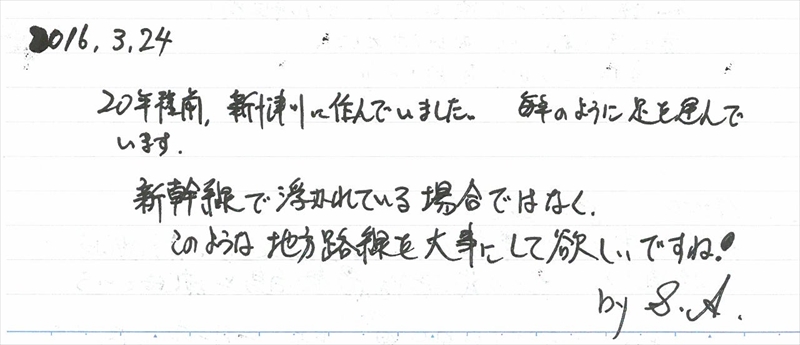 2016.3.24
20年程前,新十津川に住んでいました。 毎年のように足を運んで
います.
新幹線で浮かれている場合ではなく.
このような地方路線を大事にして欲しいですね!
by S.A.